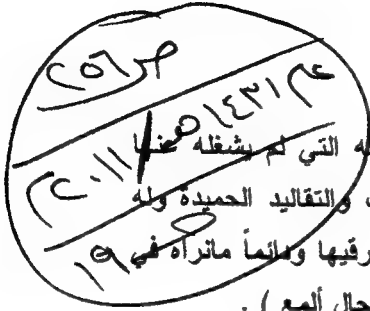 ص ٢٥٦
١٤٣١ هـ
٢٠١١م
١٩
التي لم يشغله عنها
والتقاليد الحميدة وله
رقيها ودائماً مانراه في
ألمع ) .